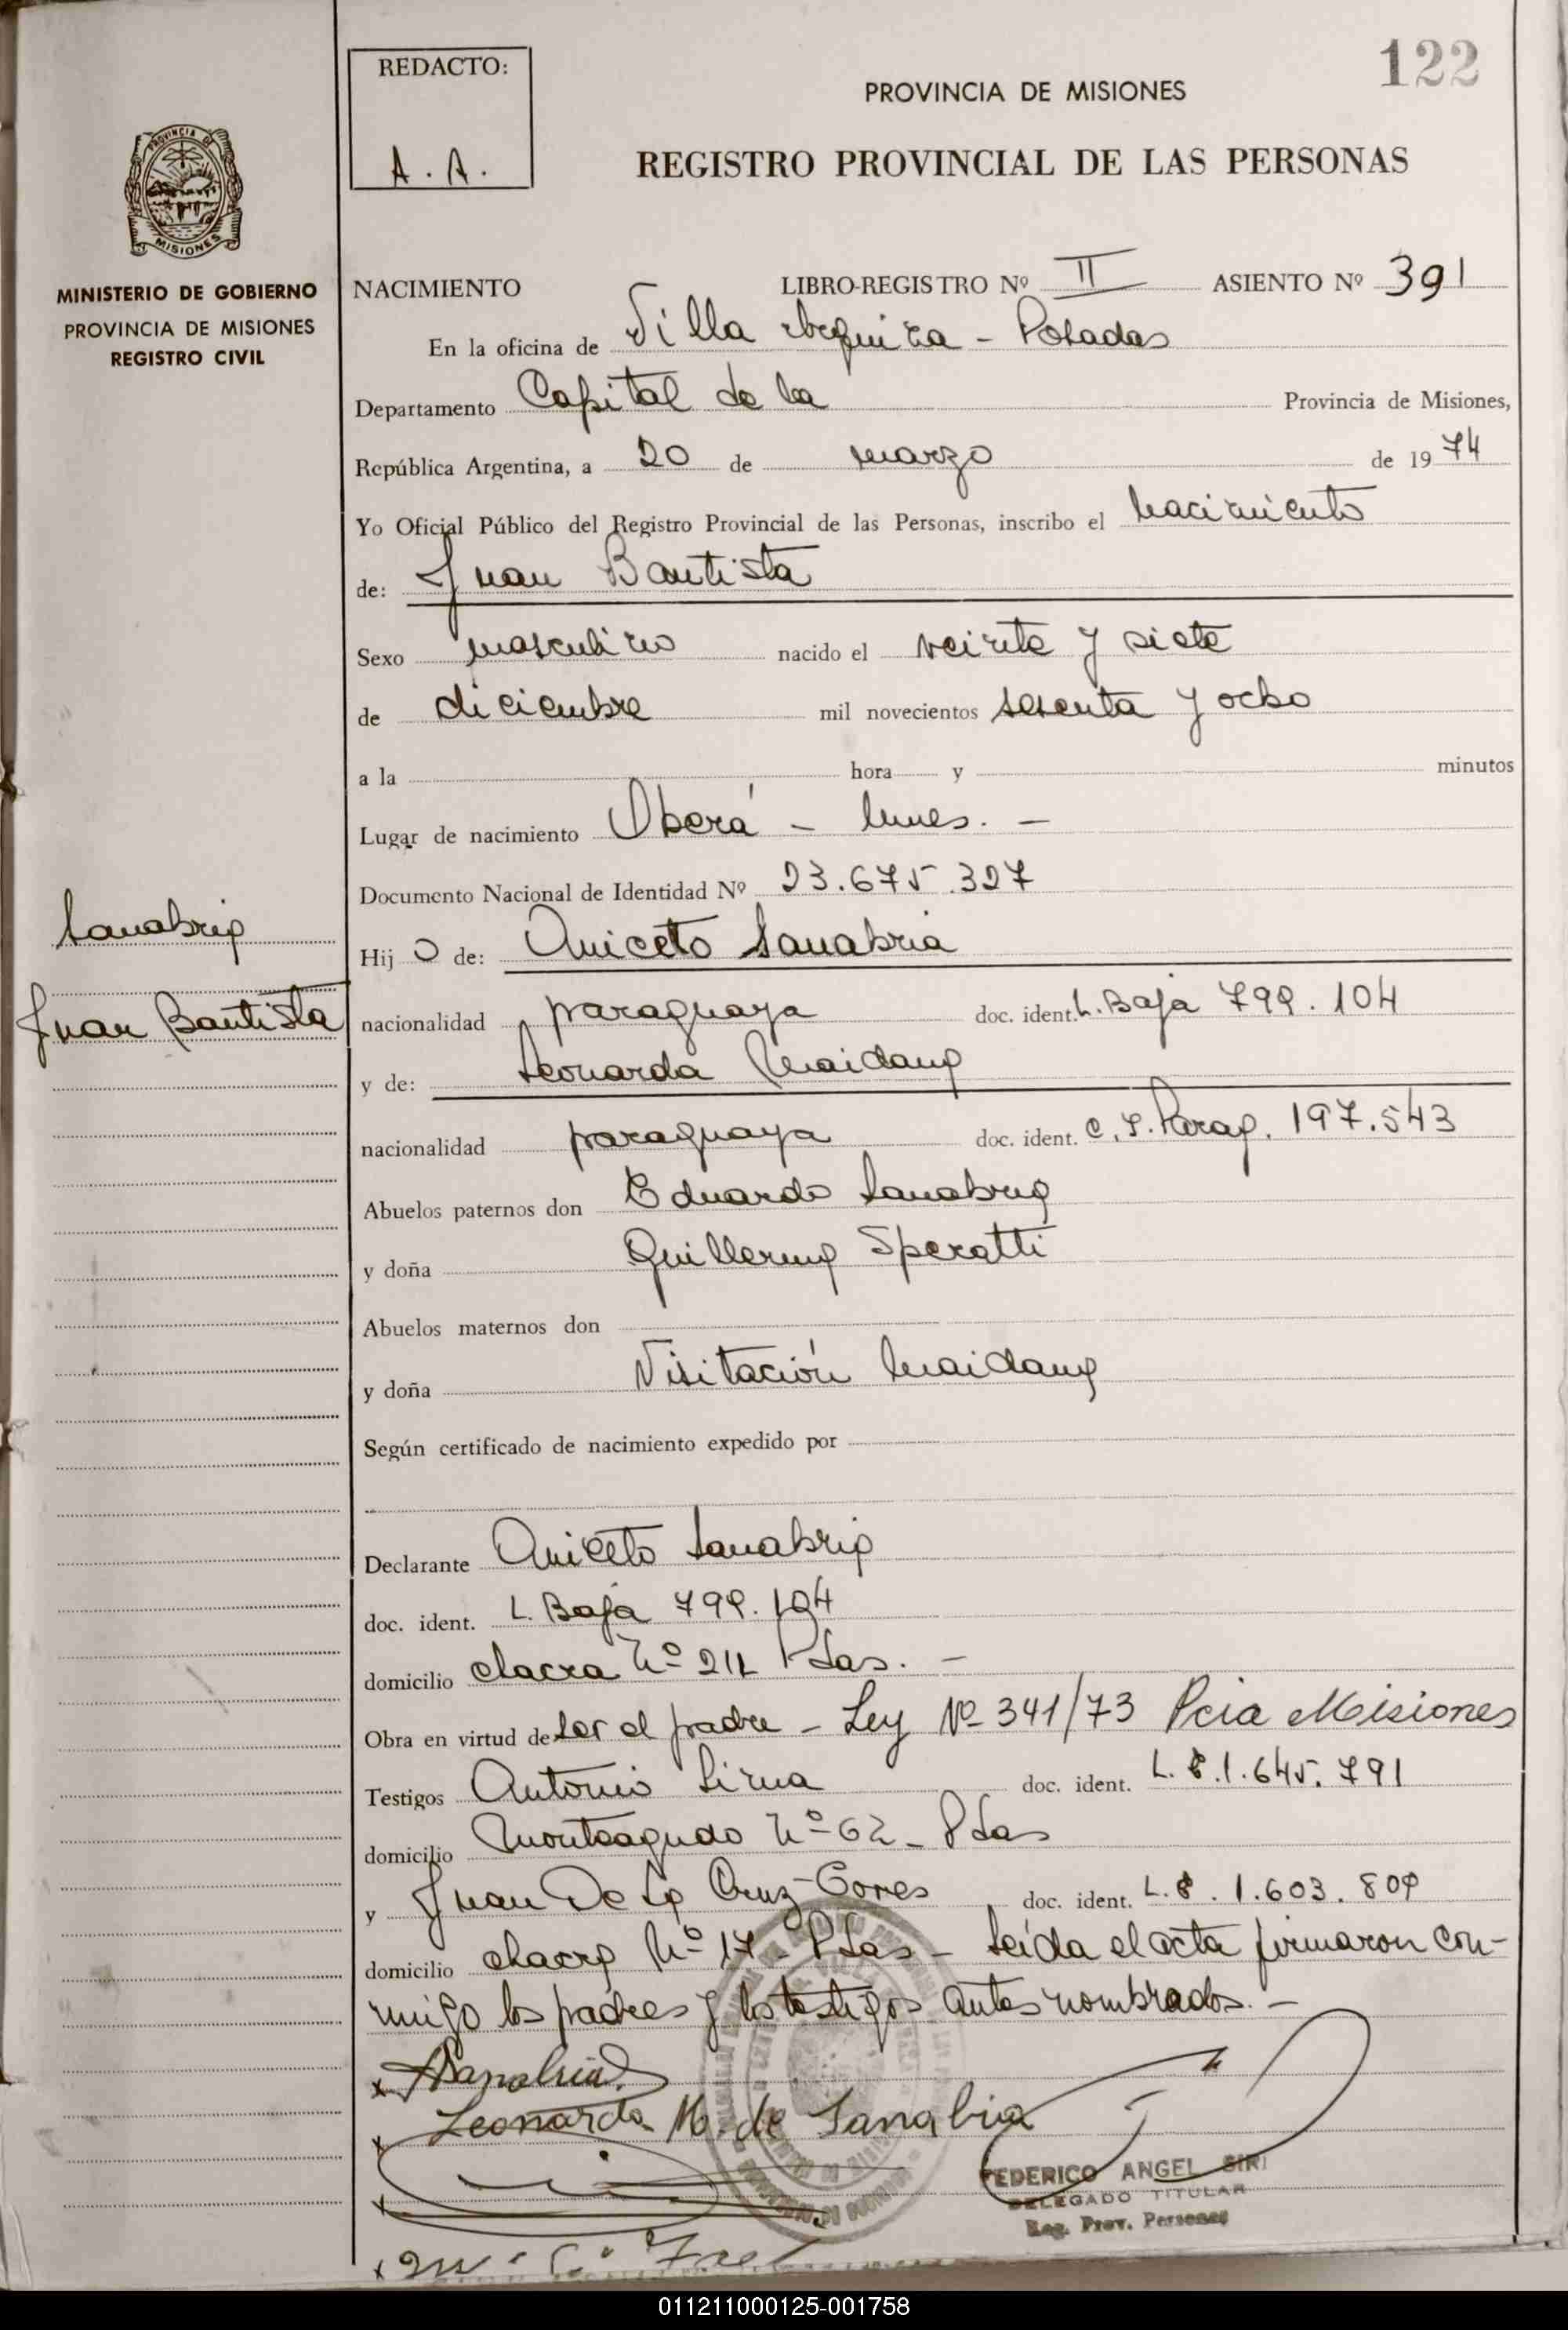 122
REDACTO:
A. A.
PROVINCIA DE MISIONES
REGISTRO PROVINCIAL DE LAS PERSONAS
PROVINCIA DE
MISIONES
MINISTERIO DE GOBIERNO
PROVINCIA DE MISIONES
REGISTRO CIVIL
NACIMIENTO LIBRO-REGISTRO Nº II ASIENTO Nº 391
En la oficina de Villa Urquiza - Posadas
Departamento Capital de la Provincia de Misiones,
República Argentina, a 20 de marzo de 1974
Yo Oficial Público del Registro Provincial de las Personas, inscribo el nacimiento
de: Juan Bautista
Sexo masculino nacido el veinte y siete
de diciembre mil novecientos sesenta y ocho
a la hora y minutos
Lugar de nacimiento Oberá - Mnes. -
Documento Nacional de Identidad Nº 23.675.327
Sanabria
Juan Bautista
Hij o de: Aniceto Sanabria
nacionalidad paraguaya doc. ident. L. Baja 799.104
y de: Leonarda Maidana
nacionalidad paraguaya doc. ident. C.I. Parag. 197.543
Abuelos paternos don Eduardo Sanabria
y doña Guillerma Speratti
Abuelos maternos don
y doña Visitación Maidana
Según certificado de nacimiento expedido por
Declarante Aniceto Sanabria
doc. ident. L. Baja 799.104
domicilio chacra Nº Pdas. -
Obra en virtud de ser el padre - Ley Nº 341/73 Pcia Misiones
Testigos Antonio doc. ident. L.E. 1.645.791
domicilio Monteagudo Nº 62 - Pdas
y Juan De La Cruz doc. ident. L.E. 1.603.809
domicilio chacra Nº 17 - Pdas - Leída el acta firmaron con-
migo los padres y los testigos antes nombrados. -
Sanabria
Leonarda M. de Sanabria
FEDERICO ANGEL SIRI
DELEGADO TITULAR
Reg. Prov. Personas
011211000125-001758